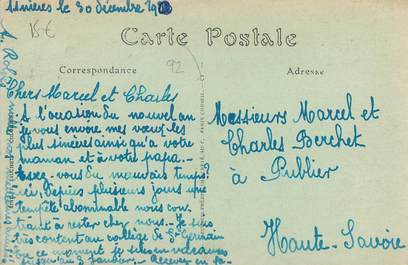 Asnières le 30 décembre
15€
92
Carte Postale
Correspondance
Adresse
Chers Marcel et Charles
A l'occasion du nouvel an
je vous envoie mes vœux les
plus sincères ainsi qu'à votre
maman et à votre papa.
vous du mauvais temps?
ici, depuis plusieurs jours une
tempête abominable nous con-
traint à rester chez nous. Je suis
très content au collège de St Germain
En ce moment je suis en vacances
jusqu'au 3 Janvier. Recevez
Messieurs Marcel et
Charles Berchet
à Publier
Haute-Savoie